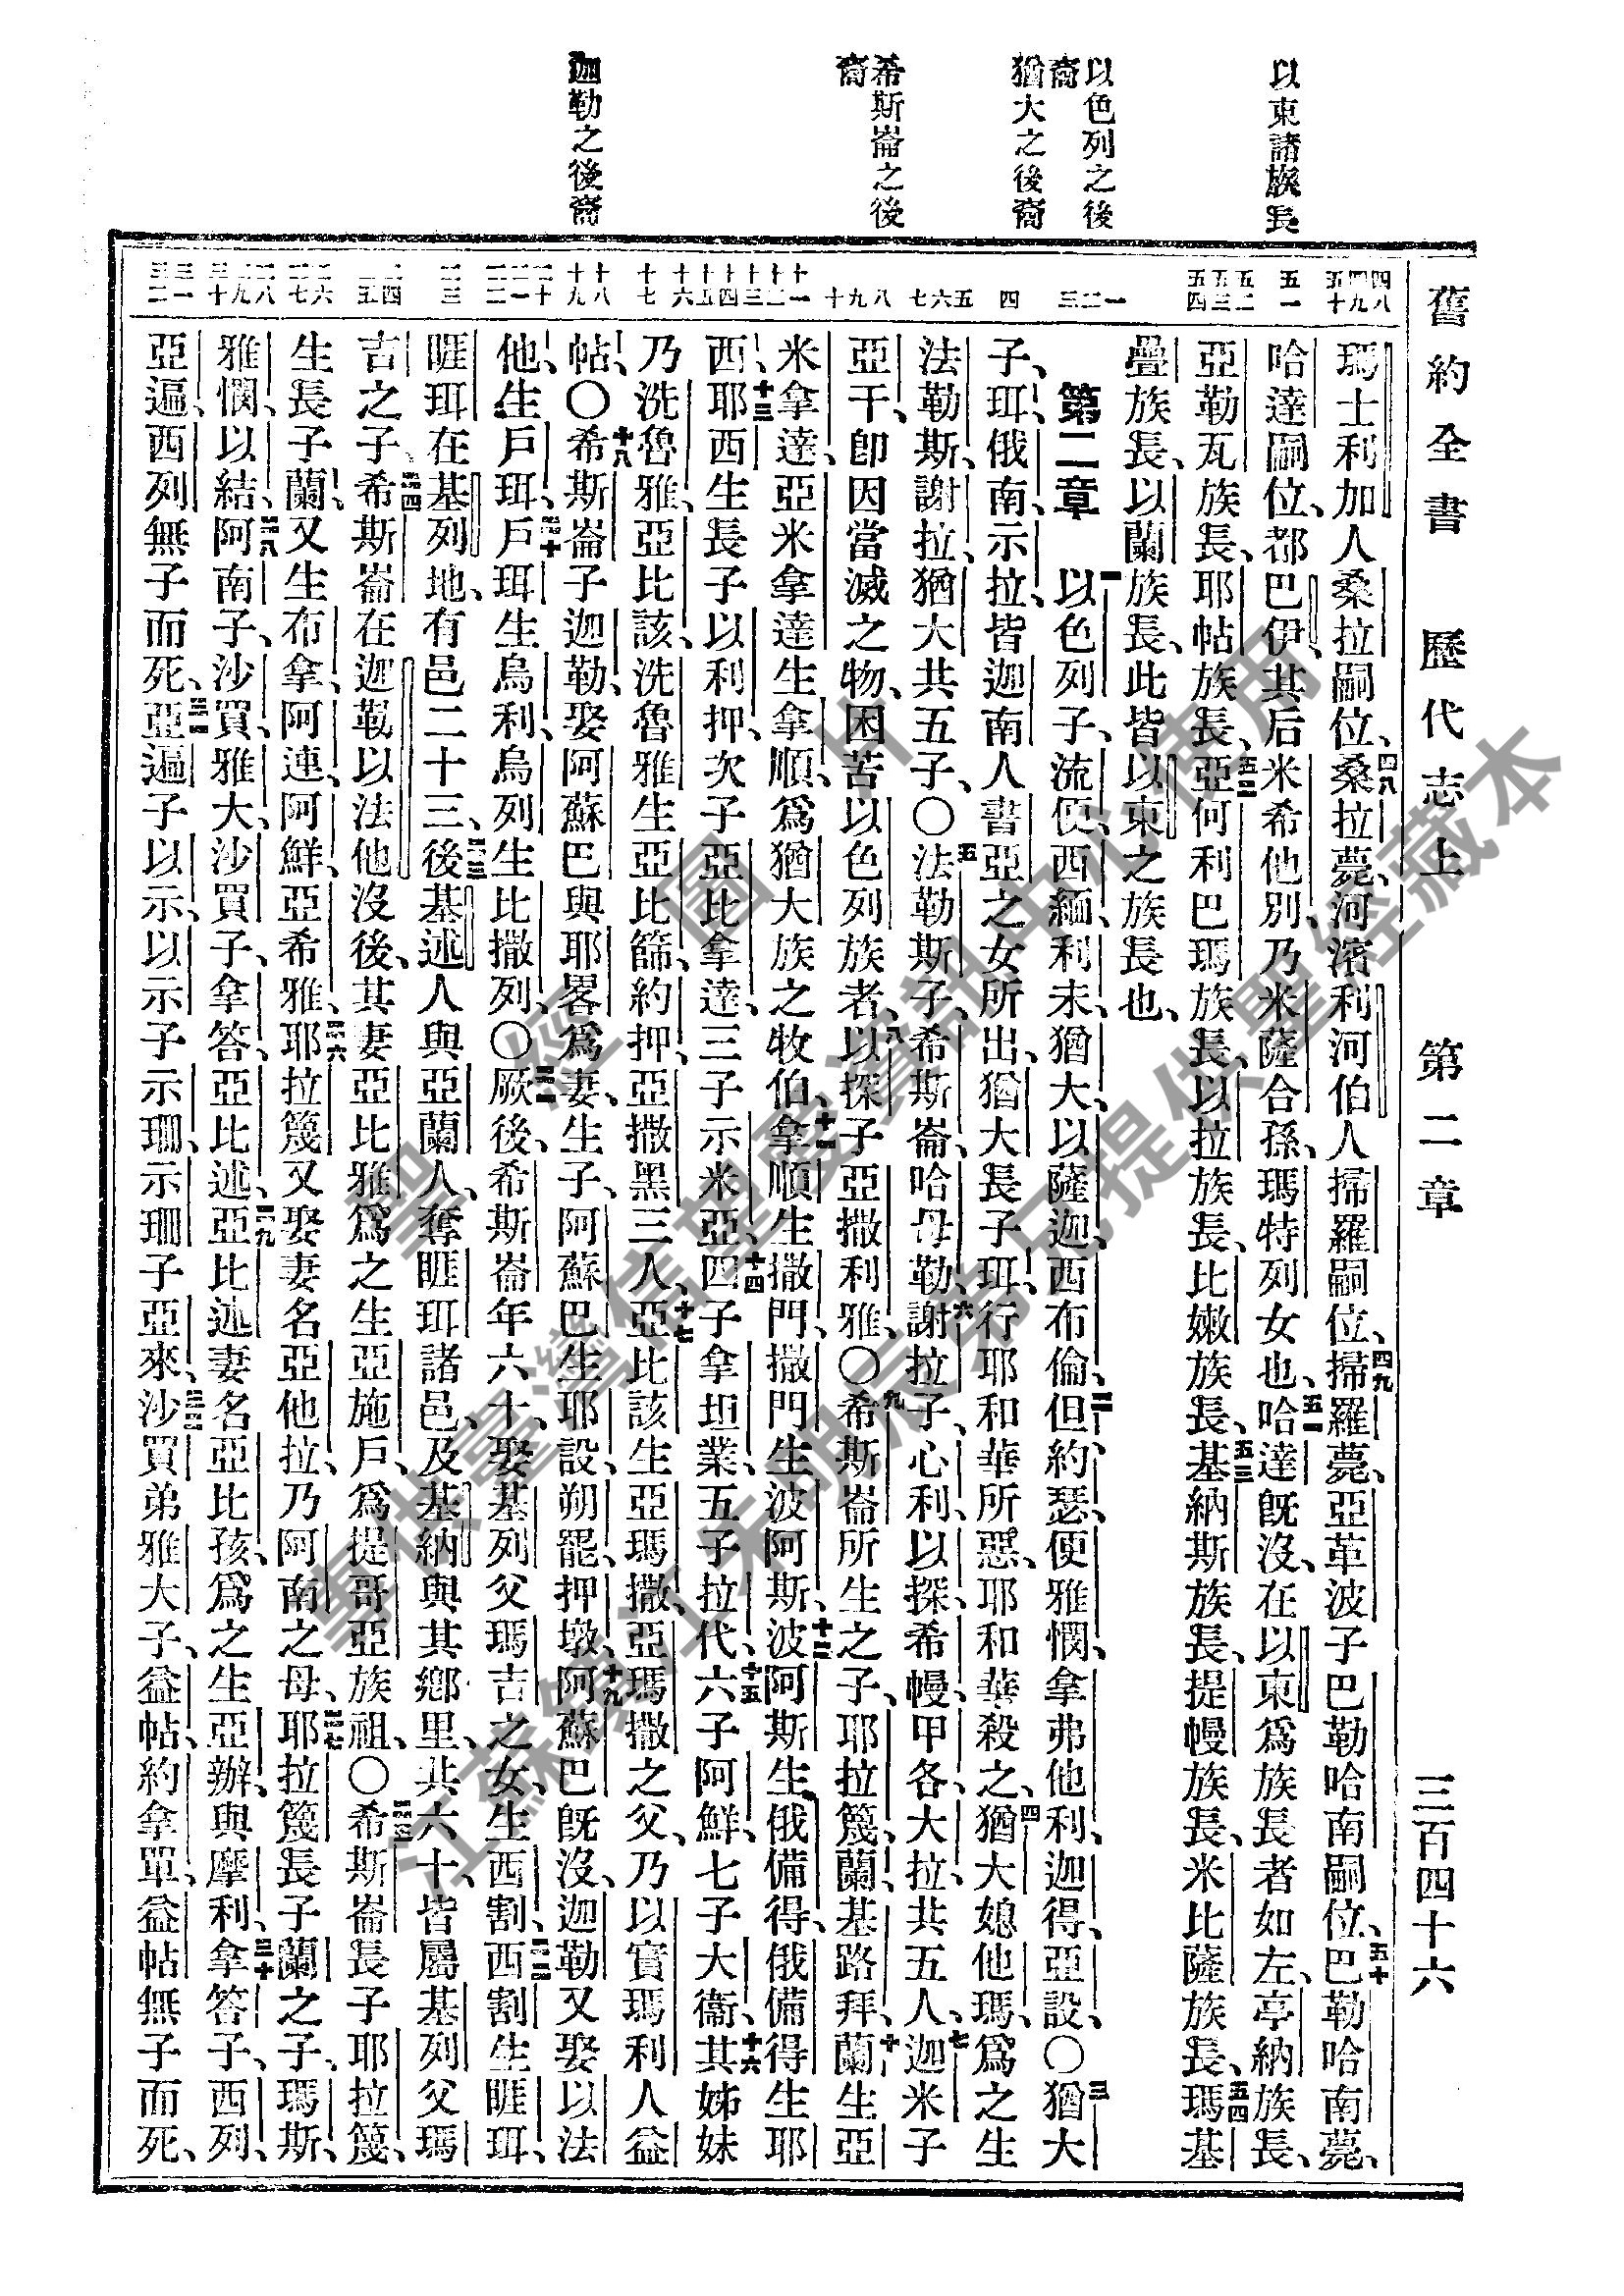 舊約全書 歷代志上 第二章 三百四十六
以東諸族長
以色列之後
裔
猶大之後裔
希斯崙之後
裔
迦勒之後裔
瑪士利加人桑拉嗣位、四八桑拉薨、河濱利河伯人掃羅嗣位、四九掃羅薨、亞革波子巴勒哈南嗣位、五十巴勒哈南薨、
哈達嗣位、都巴伊、其后米希他別、乃米薩合孫、瑪特列女也、五一哈達旣沒、在以東爲族長者如左、亭納族長、
亞勒瓦族長、耶帖族長、五二亞何利巴瑪族長、以拉族長、比嫩族長、五三基納斯族長、提幔族長、米比薩族長、五四瑪基
疊族長、以蘭族長、此皆以東之族長也、
第二章 一以色列子、流便、西緬、利未、猶大、以薩迦、西布倫、二但、約瑟、便雅憫、拿弗他利、迦得、亞設、〇三猶大
子、珥、俄南、示拉、皆迦南人書亞之女所出、猶大長子珥、行耶和華所惡、耶和華殺之、四猶大媳他瑪、爲之生
法勒斯、謝拉、猶大共五子、〇五法勒斯子、希斯崙、哈母勒、六謝拉子、心利、以探、希幔、甲各、大拉、共五人、七迦米子
亞干、卽因當滅之物、困苦以色列族者、八以探子亞撒利雅、〇九希斯崙所生之子、耶拉篾、蘭、基路拜、十蘭生亞
米拿達、亞米拿達生拿順、爲猶大族之牧伯、十一拿順生撒門、撒門生波阿斯、十二波阿斯生俄備得、俄備得生耶
西、十三耶西生長子以利押、次子亞比拿達、三子示米亞、十四四子拿坦業、五子拉代、十五六子阿鮮、七子大衞、十六其姊妹
乃洗魯雅、亞比該、洗魯雅生亞比篩、約押、亞撒黑三人、十七亞比該生亞瑪撒、亞瑪撒之父、乃以實瑪利人益
帖、〇十八希斯崙子迦勒、娶阿蘇巴與耶畧爲妻、生子、阿蘇巴生耶設、朔罷、押墩、十九阿蘇巴旣沒、迦勒又娶以法
他、生戶珥、二十戶珥生烏利、烏列生比撒列、〇二一厥後、希斯崙年六十、娶基列父瑪吉之女、生西割、二二西割生睚珥、
睚珥在基列地、有邑二十三、二三後基述人與亞蘭人、奪睚珥諸邑、及基納與其鄉里、共六十、皆屬基列父瑪
吉之子、二四希斯崙在迦勒以法他沒後、其妻亞比雅爲之生亞施戶、爲提哥亞族祖、〇二五希斯崙長子耶拉篾、
生長子蘭、又生布拿、阿連、阿鮮、亞希雅、二六耶拉篾又娶妻名亞他拉、乃阿南之母、二七耶拉篾長子蘭之子、瑪斯、
雅憫、以結、二八阿南子、沙買、雅大、沙買子、拿答、亞比述、二九亞比述妻名亞比孩、爲之生亞辦、與摩利、三十拿答子、西列、
亞遍、西列無子而死、三一亞遍子以示、以示子示珊、示珊子亞來、三二沙買弟雅大子、益帖、約拿單、益帖無子而死、